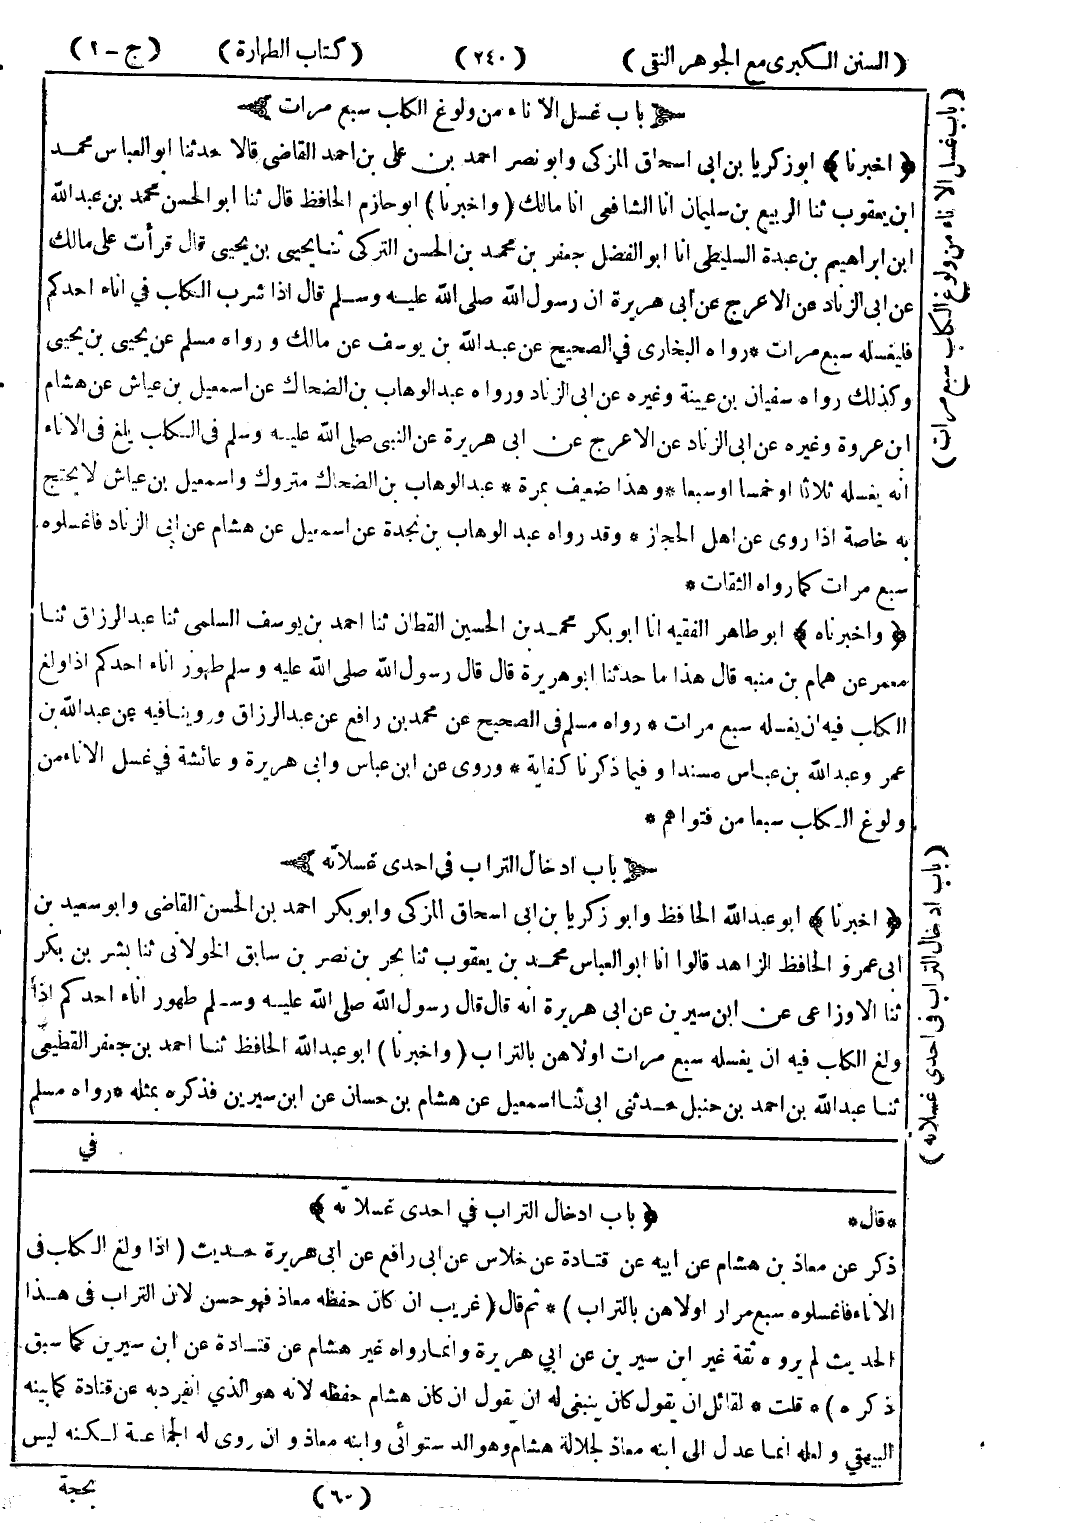 ( السنن الكبرى مع الجوهر النقى ) ( ٢٤٠ ) ( كتاب الطهارة ) ( ج - ١ )
باب غسل الاناء من ولوغ الكلب سبع مرات
﴿ اخبرنا ﴾ ابو زكريا بن ابى اسحاق المزكى وابو نصر احمد بن على بن احمد القاضى قالا حدثنا ابو العباس محمد
ابن يعقوب ثنا الربيع بن سليمان انا الشافعى انا مالك ( واخبرنا ) ابو حازم الحافظ قال ثنا ابو الحسن محمد بن عبد الله
ابن ابراهيم بن عبدة السليطى انا ابو الفضل جعفر بن محمد بن الحسن التركى ثنا يحيى بن يحيى قال قرأت على مالك
عن ابى الزناد عن الاعرج عن ابى هريرة ان رسول الله صلى الله عليه وسلم قال اذا شرب الكلب في اناء احدكم
فليغسله سبع مرات * رواه البخارى في الصحيح عن عبد الله بن يوسف عن مالك و رواه مسلم عن يحيى بن يحيى
وكذلك رواه سفيان بن عيينة وغيره عن ابى الزناد ورواه عبد الوهاب بن الضحاك عن اسمعيل بن عياش عن هشام
ابن عروة وغيره عن ابى الزناد عن الاعرج عن ابى هريرة عن النبى صلى الله عليه وسلم فى الكلب يلغ فى الاناء
انه يغسله ثلاثا او خمسا او سبعا * وهذا ضعيف بمرة * عبد الوهاب بن الضحاك متروك واسمعيل بن عياش لا يحتج
به خاصة اذا روى عن اهل الحجاز * وقد رواه عبد الوهاب بن نجدة عن اسمعيل عن هشام عن ابى الزناد فاغسلوه
سبع مرات كما رواه الثقات *
﴿ واخبرناه ﴾ ابو طاهر الفقيه انا ابو بكر محمد بن الحسين القطان ثنا احمد بن يوسف السلمى ثنا عبد الرزاق ثنا
معمر عن همام بن منبه قال هذا ما حدثنا ابو هريرة قال قال رسول الله صلى الله عليه وسلم طهور اناء احدكم اذا ولغ
الكلب فيه ان يغسله سبع مرات * رواه مسلم فى الصحيح عن محمد بن رافع عن عبد الرزاق وروينا فيه عن عبد الله بن
عمر وعبد الله بن عباس مسندا و فيما ذكرنا كفاية * وروى عن ابن عباس وابى هريرة وعائشة في غسل الاناء من
ولوغ الكلب سبعا من فتواهم *
باب ادخال التراب فى احدى غسلاته
﴿ اخبرنا ﴾ ابو عبد الله الحافظ وابو زكريا بن ابى اسحاق المزكى وابو بكر احمد بن الحسن القاضى وابو سعيد بن
ابى عمرو الحافظ الزاهد قالوا انا ابو العباس محمد بن يعقوب ثنا بحر بن نصر بن سابق الخولانى ثنا بشر بن بكر
ثنا الاوزاعى عن ابن سيرين عن ابى هريرة انه قال قال رسول الله صلى الله عليه وسلم طهور اناء احدكم اذا
ولغ الكلب فيه ان يغسله سبع مرات اولاهن بالتراب ( واخبرنا ) ابو عبد الله الحافظ ثنا احمد بن جعفر القطيعى
ثنا عبد الله بن احمد بن حنبل حدثنى ابى ثنا اسمعيل عن هشام بن حسان عن ابن سيرين فذكره بمثله * رواه مسلم
في
( باب غسل الاناء من ولوغ الكلب سبع مرات )
( باب ادخال التراب فى احدى غسلاته )
* قال * ﴿ باب ادخال التراب في احدى غسلاته ﴾
ذكر عن معاذ بن هشام عن ابيه عن قتادة عن خلاس عن ابى رافع عن ابى هريرة حديث ( اذا ولغ الكلب فى
الاناء فاغسلوه سبع مرار اولاهن بالتراب ) * ثم قال ( غريب ان كان حفظه معاذ فهو حسن لان التراب فى هذا
الحديث لم يروه ثقة غير ابن سيرين عن ابي هريرة وانما رواه غير هشام عن قتادة عن ابن سيرين كما سبق
ذكره ) * قلت * لقائل ان يقول كان ينبغى له ان يقول ان كان هشام حفظه لانه هو الذي انفرد به عن قتادة كما بينه
البيهقي و لعله انما عدل الى ابنه معاذ لجلالة هشام وهو الدستوائى وابنه معاذ و ان روى له الجماعة لكنه ليس
( ٦٠ ) بحجة